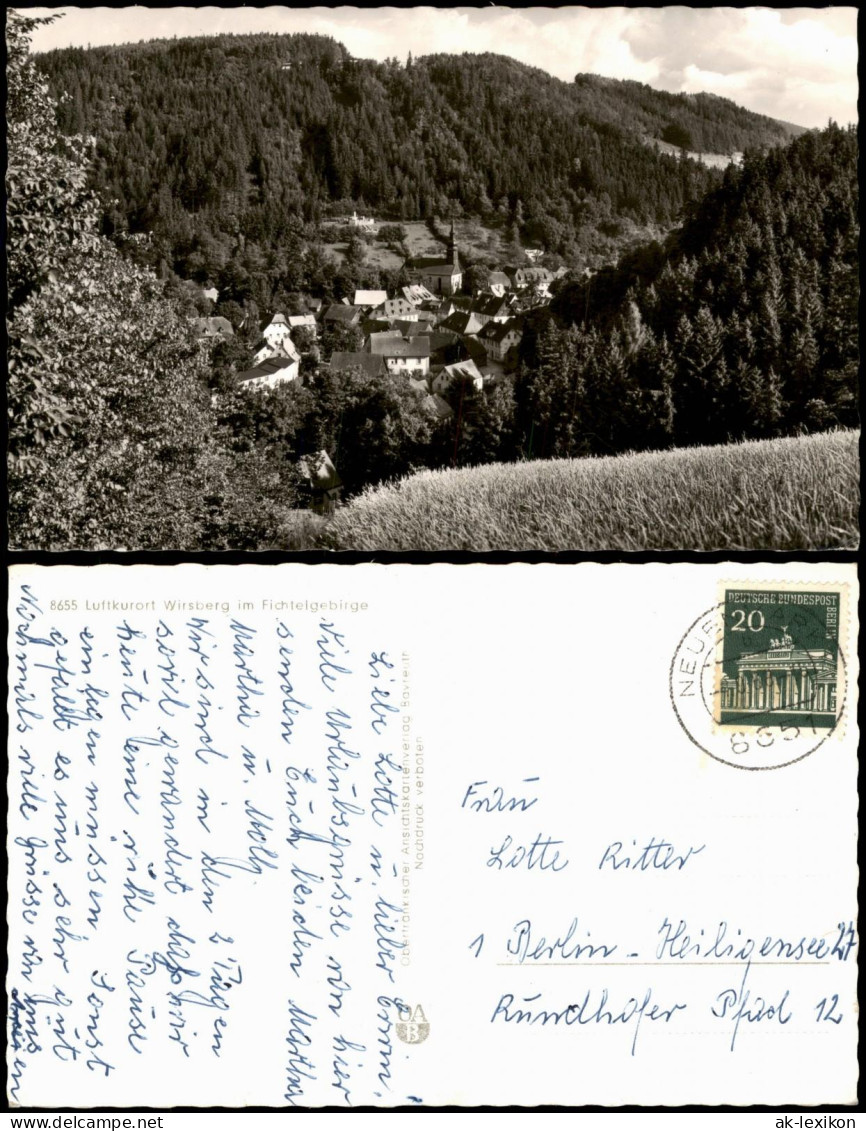 8655 Luftkurort Wirsberg im Fichtelgebirge
Liebe Lotte u. lieber Erwin.
Viele Urlaubsgrüsse von hier
senden Euch beiden Martha
Martha u. Wolfg.
Wir sind in den 2 Tagen
soviel gewandert daß wir
heute eine ruhe Pause
einlegen müssen Sonst
gefällt es uns sehr gut
Nochmals viele Grüsse von uns
Oberfränkischer Ansichtskartenverlag Bayreuth
Nachdruck verboten
OA
B
DEUTSCHE BUNDESPOST
BERLIN
20
NEUEN
8651
Frau
Lotte Ritter
1 Berlin - Heiligensee 27
Rundhofer Pfad 12
www.ak-ansichtskarten.de
ak-lexikon